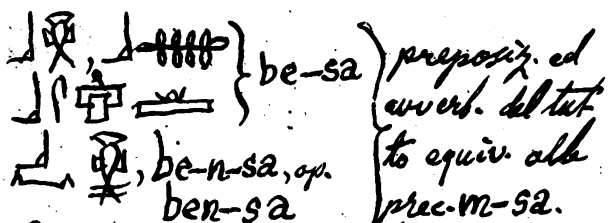 be-sa
be-n-sa, op.
ben-sa
preposiz. ed
avverb. del tut
to equiv. alla
prec. m-sa.